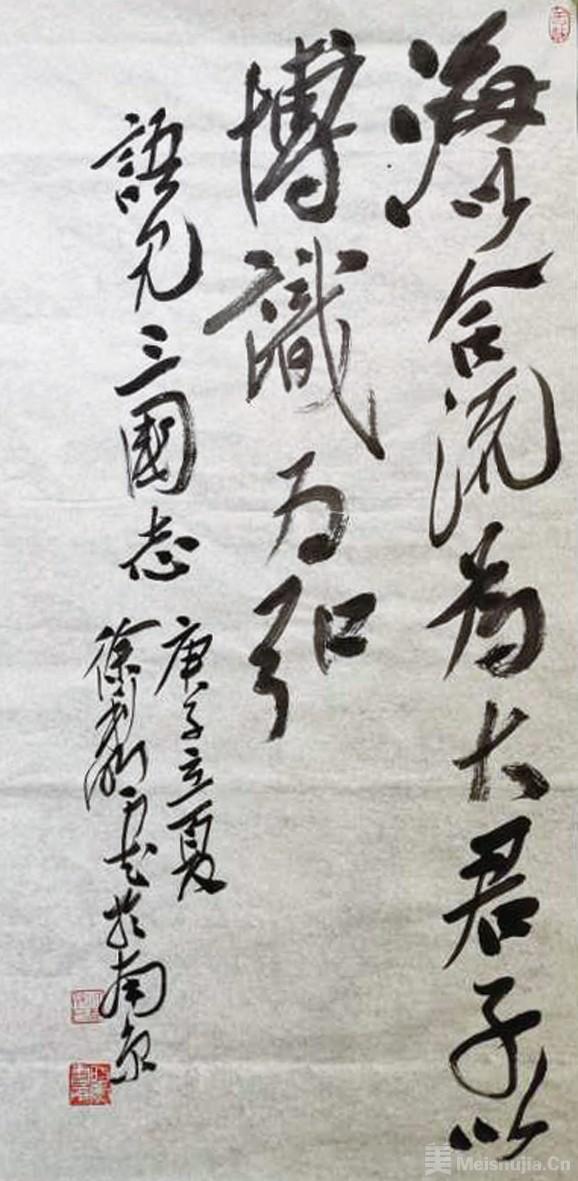 海以合流為大君子以
博識为弘
語見三國志
庚子立夏
徐利於南京
美 Meishujia.Cn